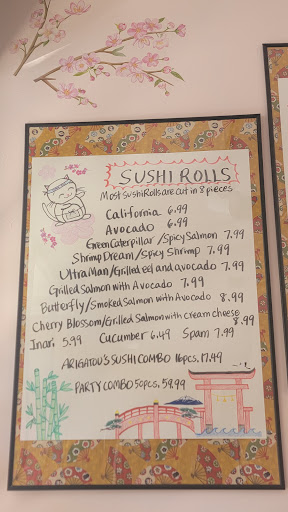 SUSHI ROLLS
Most sushi Rolls are cut in 8 pieces
California 6.99
Avocado 6.99
Green Caterpillar/Spicy Salmon 7.99
Shrimp Dream/Spicy Shrimp 7.99
Ultra Man/Grilled eel and avocado 7.99
Grilled Salmon with Avocado 7.99
Butterfly/Smoked Salmon with Avocado 8.99
Cherry Blossom/Grilled Salmon with cream cheese 8.99
Inari 5.99 Cucumber 6.49 Spam 7.99
ARIGATOU'S SUSHI COMBO 16pcs. 17.99
PARTY COMBO 50pcs. 59.99